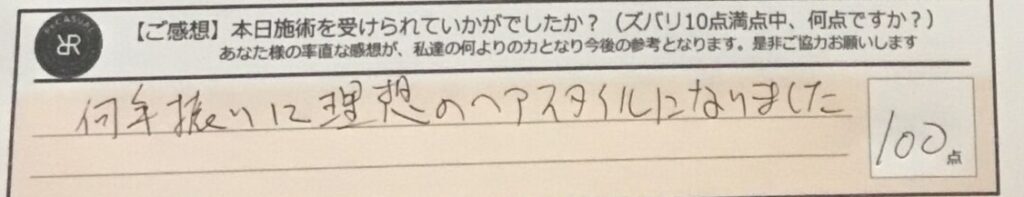 【ご感想】本日施術を受けられていかがでしたか？（ズバリ10点満点中、何点ですか？）
あなた様の率直な感想が、私達の何よりの力となり今後の参考となります。是非ご協力お願いします
何年振りに理想のヘアスタイルになりました
100点